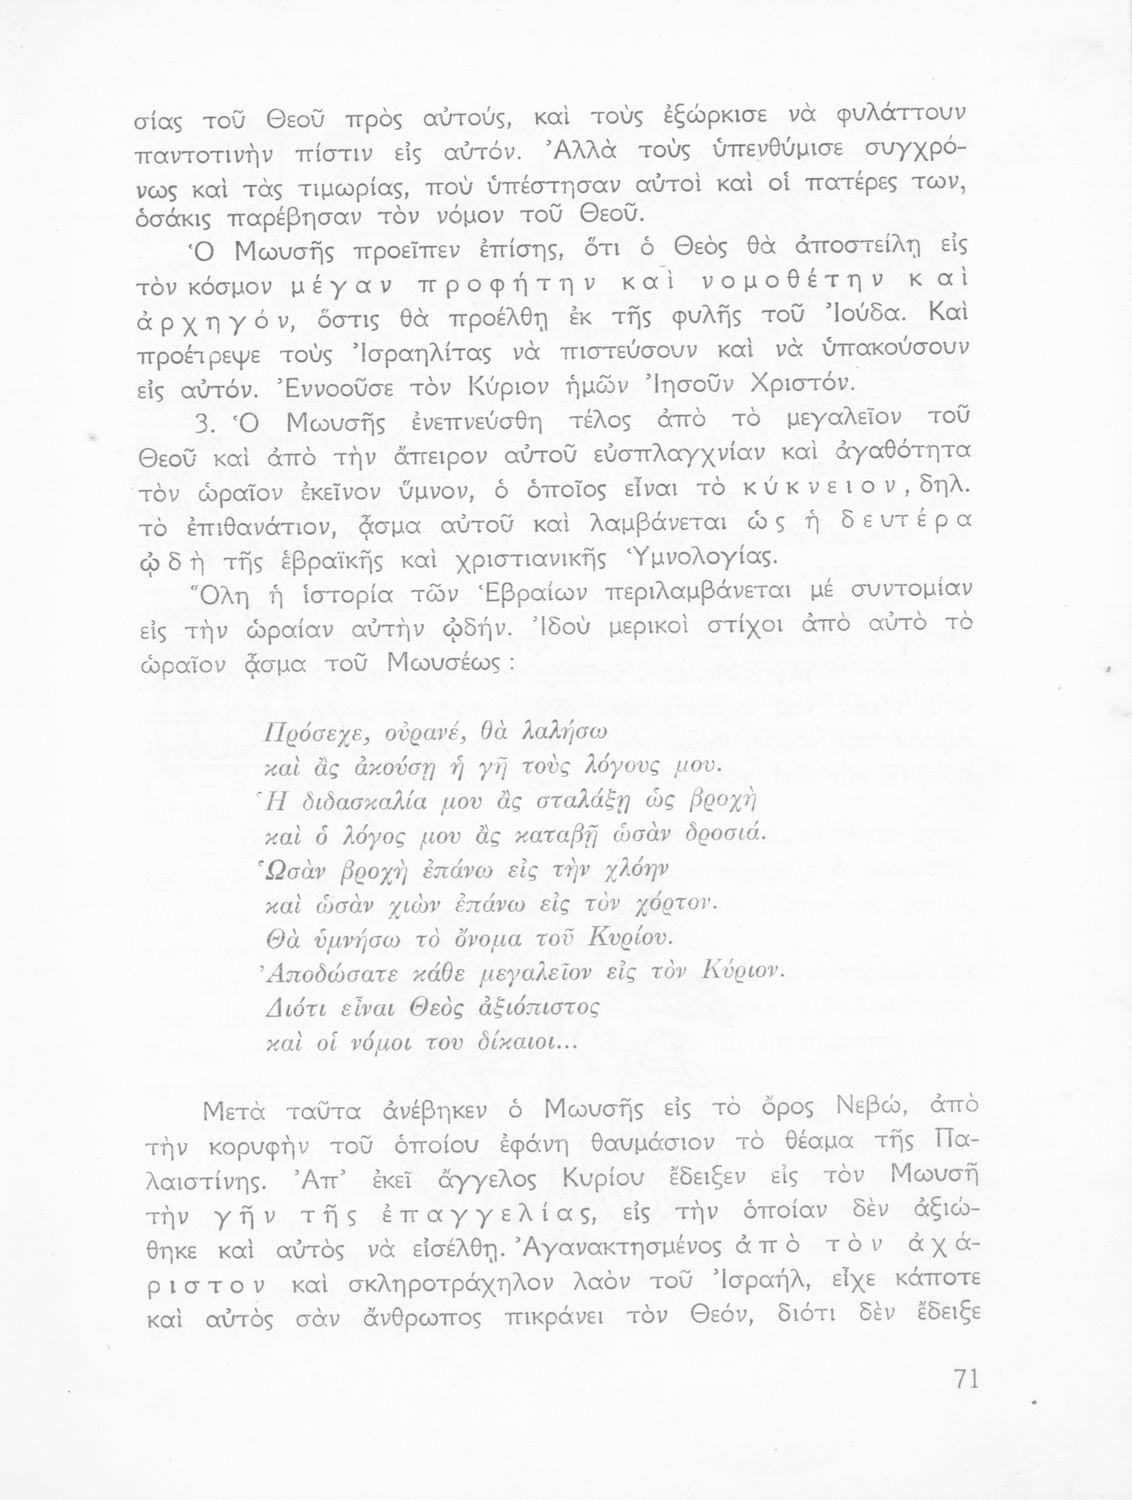 σίας τοῦ Θεοῦ πρὸς αὐτούς, καὶ τοὺς ἐξώρκισε νὰ φυλάττουν
παντοτινὴν πίστιν εἰς αὐτόν. Ἀλλὰ τοὺς ὑπενθύμισε συγχρό-
νως καὶ τὰς τιμωρίας, ποὺ ὑπέστησαν αὐτοὶ καὶ οἱ πατέρες των,
ὁσάκις παρέβησαν τὸν νόμον τοῦ Θεοῦ.
Ὁ Μωυσῆς προεῖπεν ἐπίσης, ὅτι ὁ Θεὸς θὰ ἀποστείλῃ εἰς
τὸν κόσμον μέγαν προφήτην καὶ νομοθέτην καὶ
ἀρχηγόν, ὅστις θὰ προέλθῃ ἐκ τῆς φυλῆς τοῦ Ἰούδα. Καὶ
προέτρεψε τοὺς Ἰσραηλίτας νὰ πιστεύσουν καὶ νὰ ὑπακούσουν
εἰς αὐτόν. Ἐννοοῦσε τὸν Κύριον ἡμῶν Ἰησοῦν Χριστόν.
3. Ὁ Μωυσῆς ἐνεπνεύσθη τέλος ἀπὸ τὸ μεγαλεῖον τοῦ
Θεοῦ καὶ ἀπὸ τὴν ἄπειρον αὐτοῦ εὐσπλαγχνίαν καὶ ἀγαθότητα
τὸν ὡραῖον ἐκεῖνον ὕμνον, ὁ ὁποῖος εἶναι τὸ κύκνειον, δηλ.
τὸ ἐπιθανάτιον, ᾆσμα αὐτοῦ καὶ λαμβάνεται ὡς ἡ δευτέρα
ᾠδὴ τῆς ἑβραϊκῆς καὶ χριστιανικῆς Ὑμνολογίας.
Ὅλη ἡ ἱστορία τῶν Ἑβραίων περιλαμβάνεται μέ συντομίαν
εἰς τὴν ὡραίαν αὐτὴν ᾠδήν. Ἰδοὺ μερικοὶ στίχοι ἀπὸ αὐτὸ τὸ
ὡραῖον ᾆσμα τοῦ Μωυσέως :
Πρόσεχε, οὐρανέ, θὰ λαλήσω
καὶ ἂς ἀκούσῃ ἡ γῆ τοὺς λόγους μου.
Ἡ διδασκαλία μου ἂς σταλάξῃ ὡς βροχὴ
καὶ ὁ λόγος μου ἂς καταβῇ ὡσὰν δροσιά.
Ὡσὰν βροχὴ ἐπάνω εἰς τὴν χλόην
καὶ ὡσὰν χιὼν ἐπάνω εἰς τὸν χόρτον.
Θὰ ὑμνήσω τὸ ὄνομα τοῦ Κυρίου.
Ἀποδώσατε κάθε μεγαλεῖον εἰς τὸν Κύριον.
Διότι εἶναι Θεὸς ἀξιόπιστος
καὶ οἱ νόμοι του δίκαιοι...
Μετὰ ταῦτα ἀνέβηκεν ὁ Μωυσῆς εἰς τὸ ὄρος Νεβώ, ἀπὸ
τὴν κορυφὴν τοῦ ὁποίου ἐφάνη θαυμάσιον τὸ θέαμα τῆς Πα-
λαιστίνης. Ἀπ' ἐκεῖ ἄγγελος Κυρίου ἔδειξεν εἰς τὸν Μωυσῆ
τὴν γῆν τῆς ἐπαγγελίας, εἰς τὴν ὁποίαν δὲν ἀξιώ-
θηκε καὶ αὐτὸς νὰ εἰσέλθῃ. Ἀγανακτησμένος ἀπὸ τὸν ἀχά-
ριστον καὶ σκληροτράχηλον λαὸν τοῦ Ἰσραήλ, εἶχε κάποτε
καὶ αὐτὸς σὰν ἄνθρωπος πικράνει τὸν Θεόν, διότι δὲν ἔδειξε
71